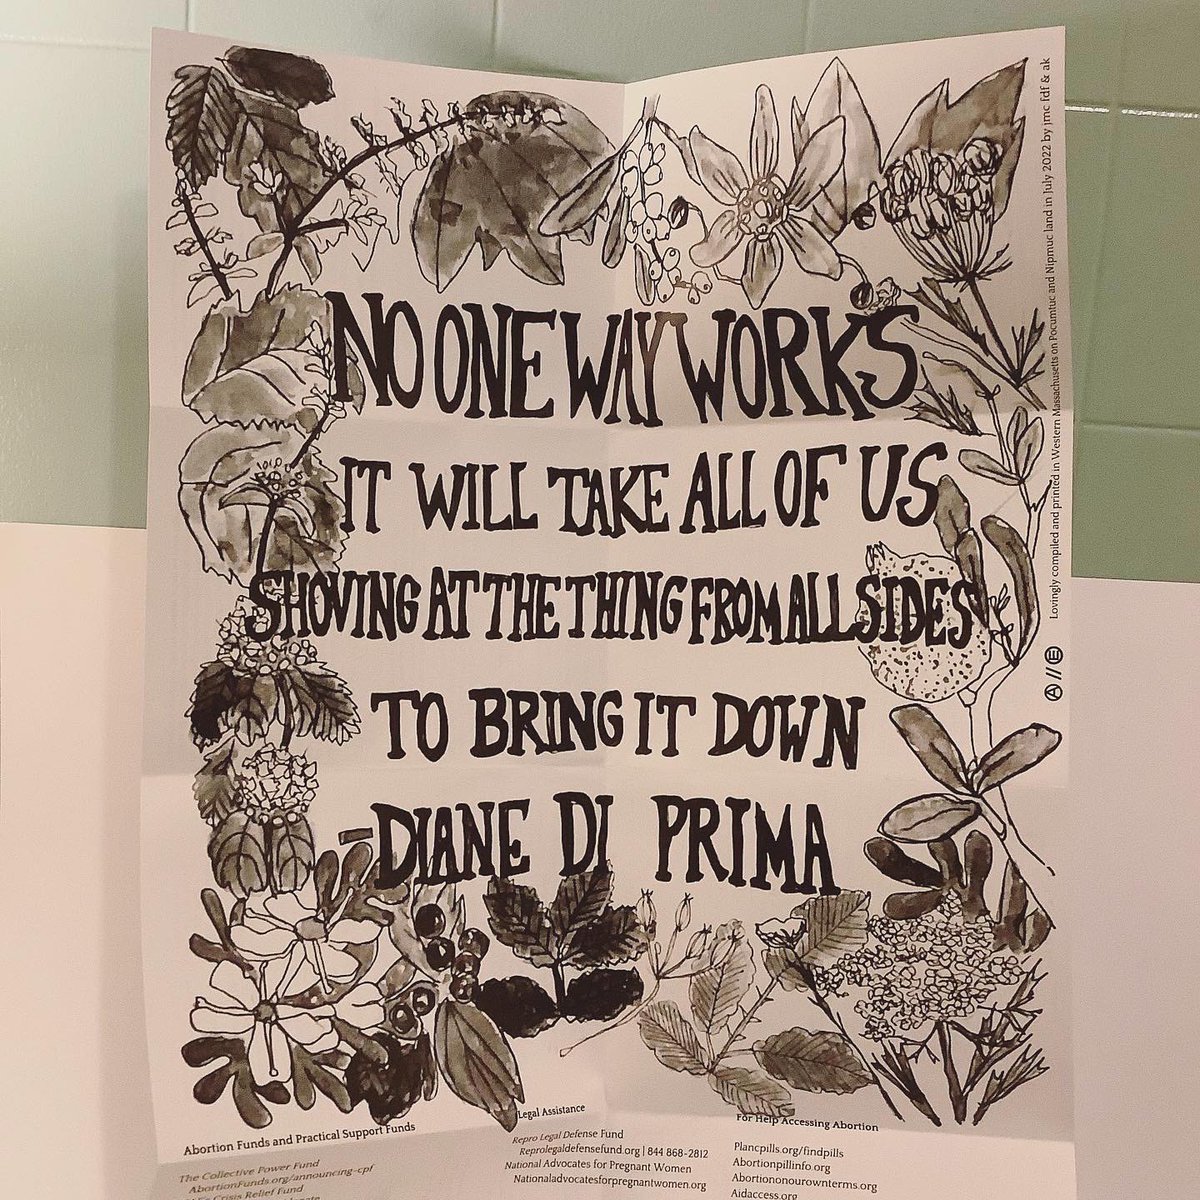 NO ONE WAY WORKS
IT WILL TAKE ALL OF US
SHOVING AT THE THING FROM ALL SIDES
TO BRING IT DOWN
-DIANE DI PRIMA
Lovingly compiled and printed in Western Massachusetts on Pocumtuc and Nipmuc land in July 2022 by jmc fdf & ak
Abortion Funds and Practical Support Funds
The Collective Power Fund
AbortionFunds.org/announcing-cpf
Crisis Relief Fund
Legal Assistance
Repro Legal Defense Fund
Reprolegaldefensefund.org | 844 868-2812
National Advocates for Pregnant Women
Nationaladvocatesforpregnantwomen.org
For Help Accessing Abortion
Plancpills.org/findpills
Abortionpillinfo.org
Abortiononourownterms.org
Aidaccess.org